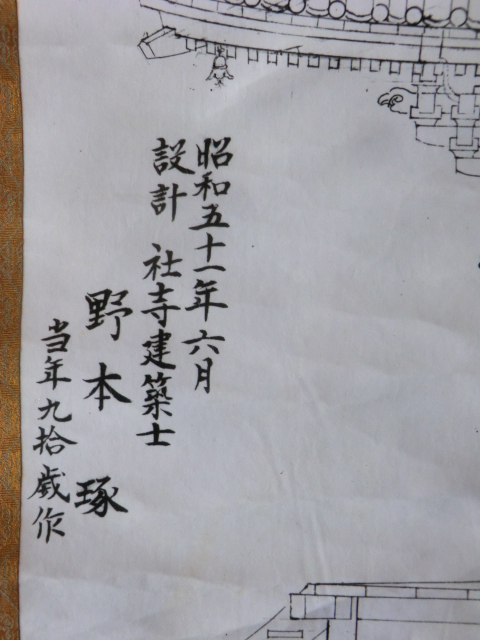 昭和五十一年六月
設計 社寺建築士
野本 琢
当年九拾歳作